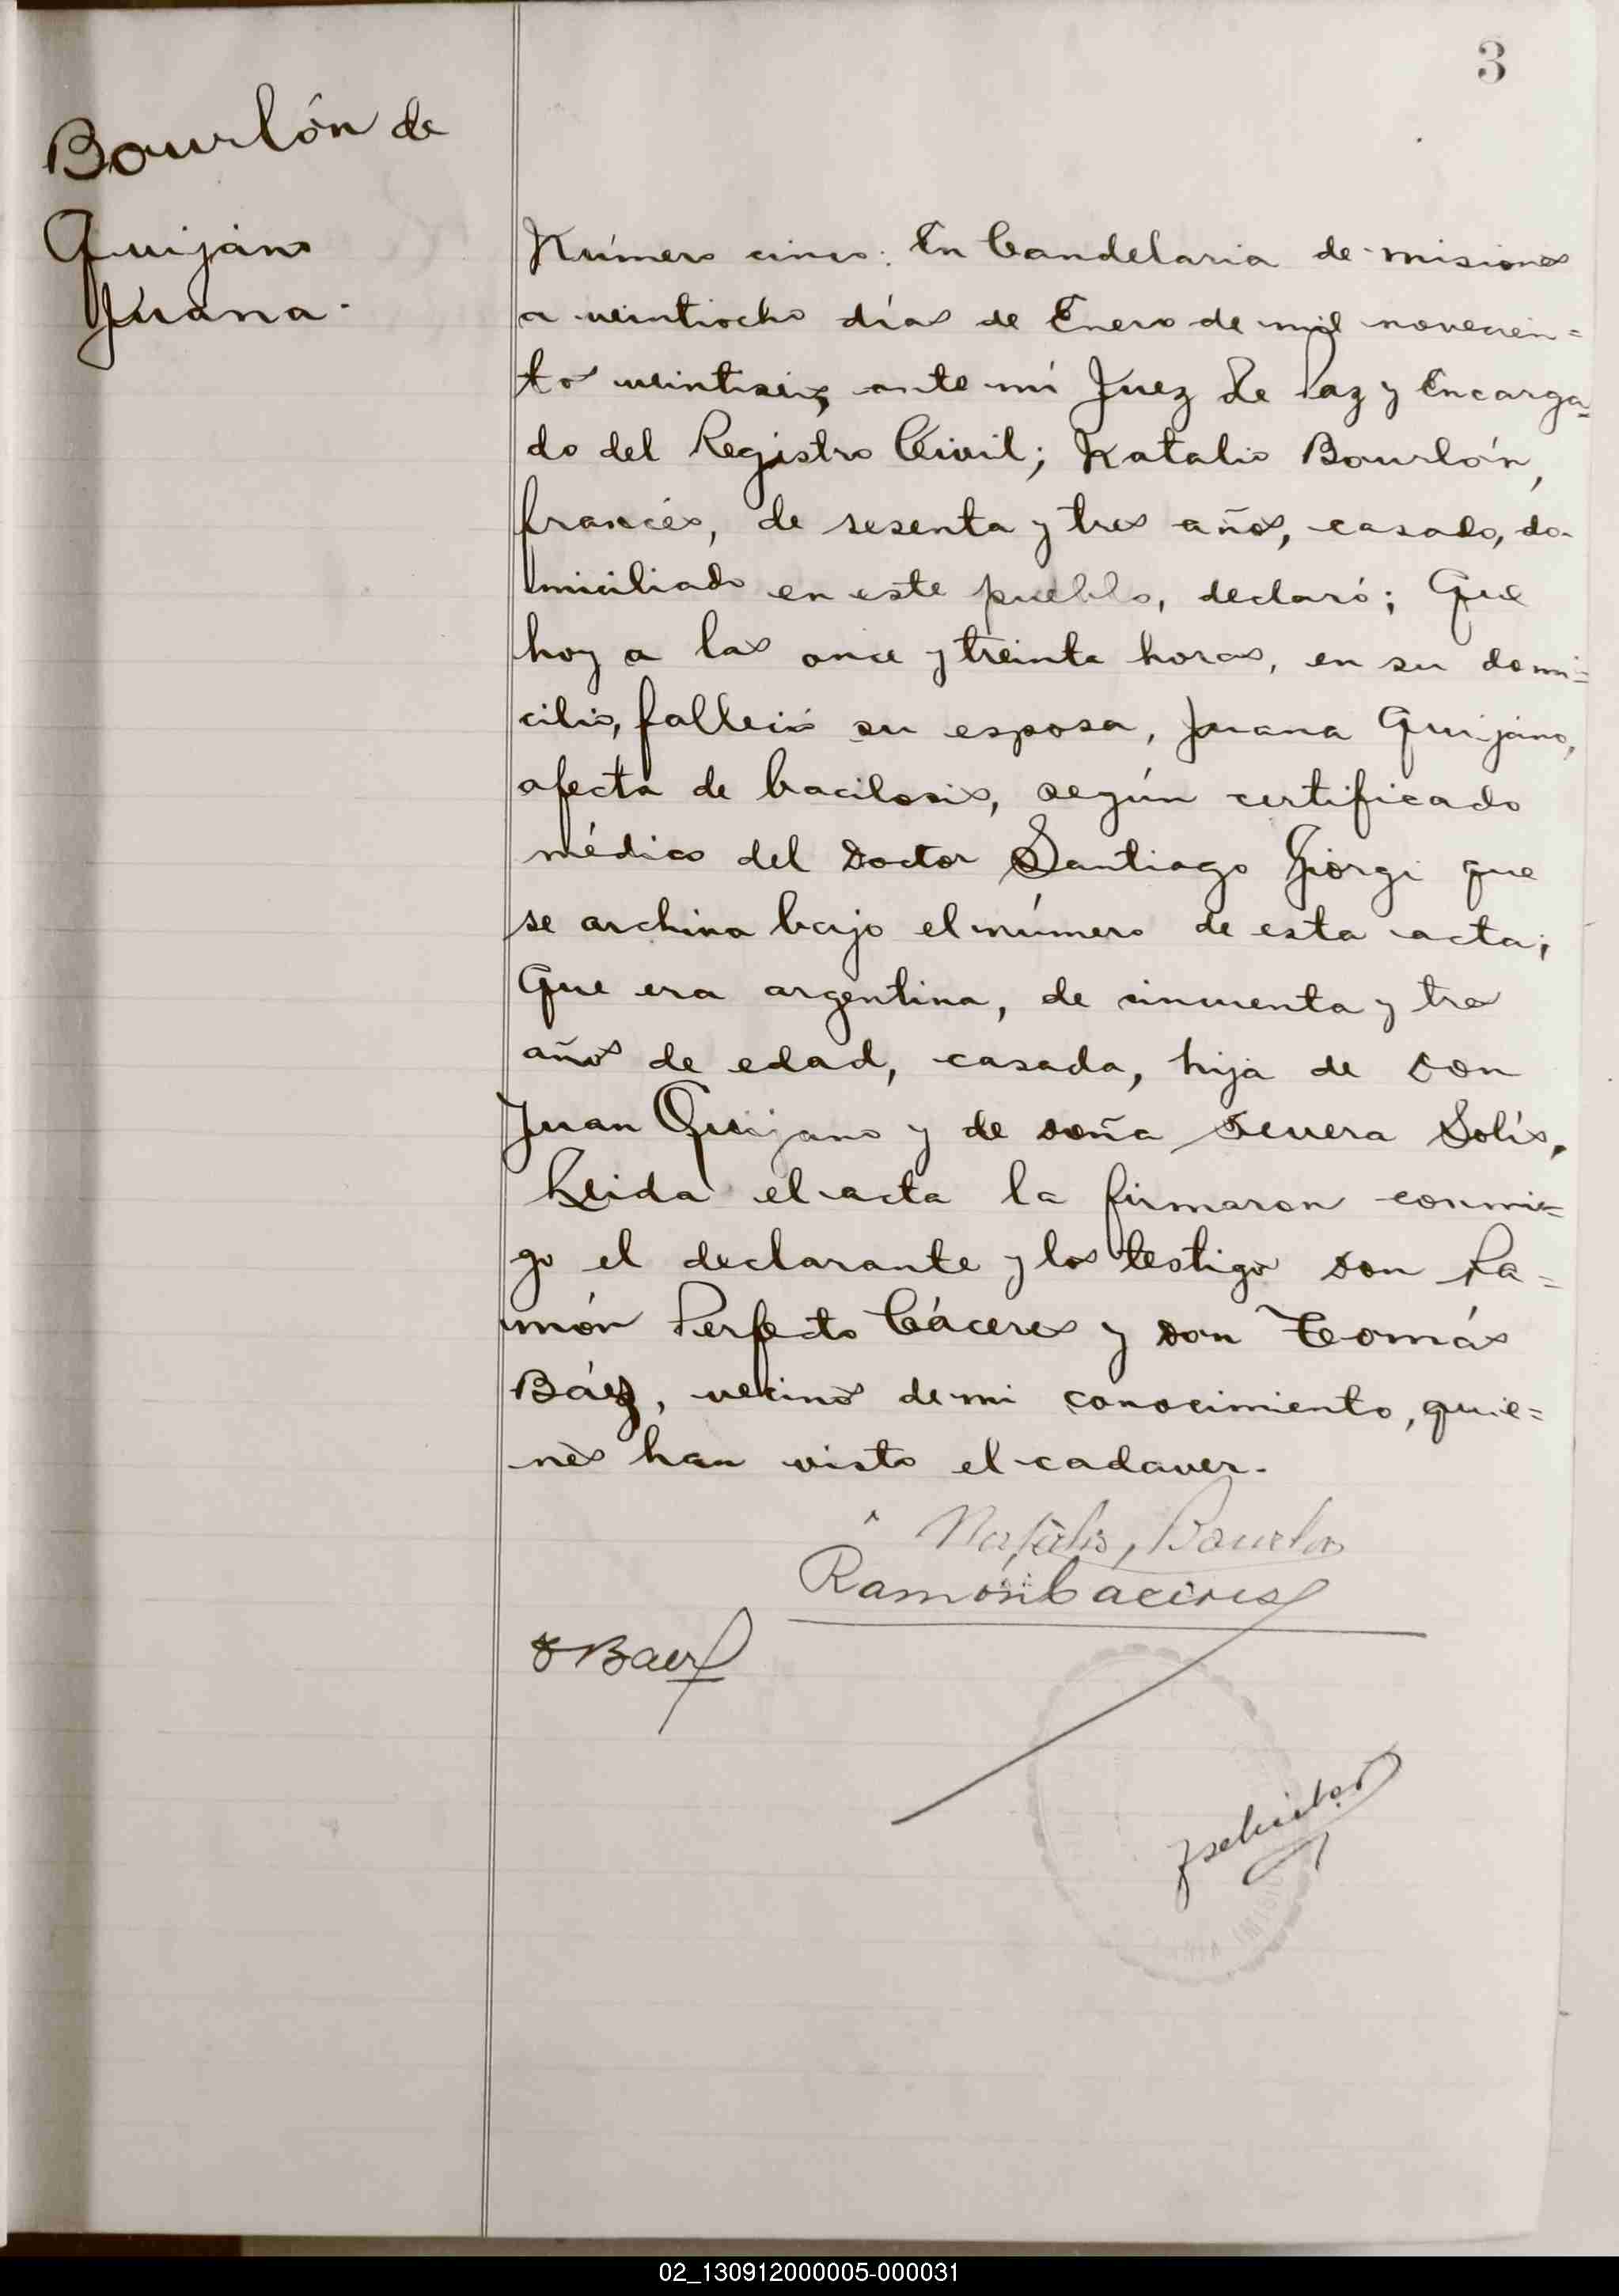 3
Bourlón de
Quijano
Juana.
Número cinco: En Candelaria de misiones
a veintiocho días de Enero de mil novecien=
tos veintiseis, ante mí Juez de Paz y Encarga=
do del Registro Civil; Natalio Bourlón,
francés, de sesenta y tres años, casado, do-
miciliado en este pueblo, declaró; Que
hoy a las once y treinta horas, en su domi=
cilio, falleció su esposa, Juana Quijano,
afecta de bacilosis, según certificado
médico del Doctor Santiago Giorgi que
se archiva bajo el número de esta acta;
Que era argentina, de cincuenta y tres
años de edad, casada, hija de don
Juan Quijano y de doña Severa Solís,
Leida el acta la firmaron conmi=
go el declarante y los testigos don Ra=
món Perfecto Cáceres y don Tomás
Báez, vecinos de mi conocimiento, quie=
nes han visto el cadaver.
Natalio Bourlon
Ramón Caceres
T Baez
02_130912000005-000031